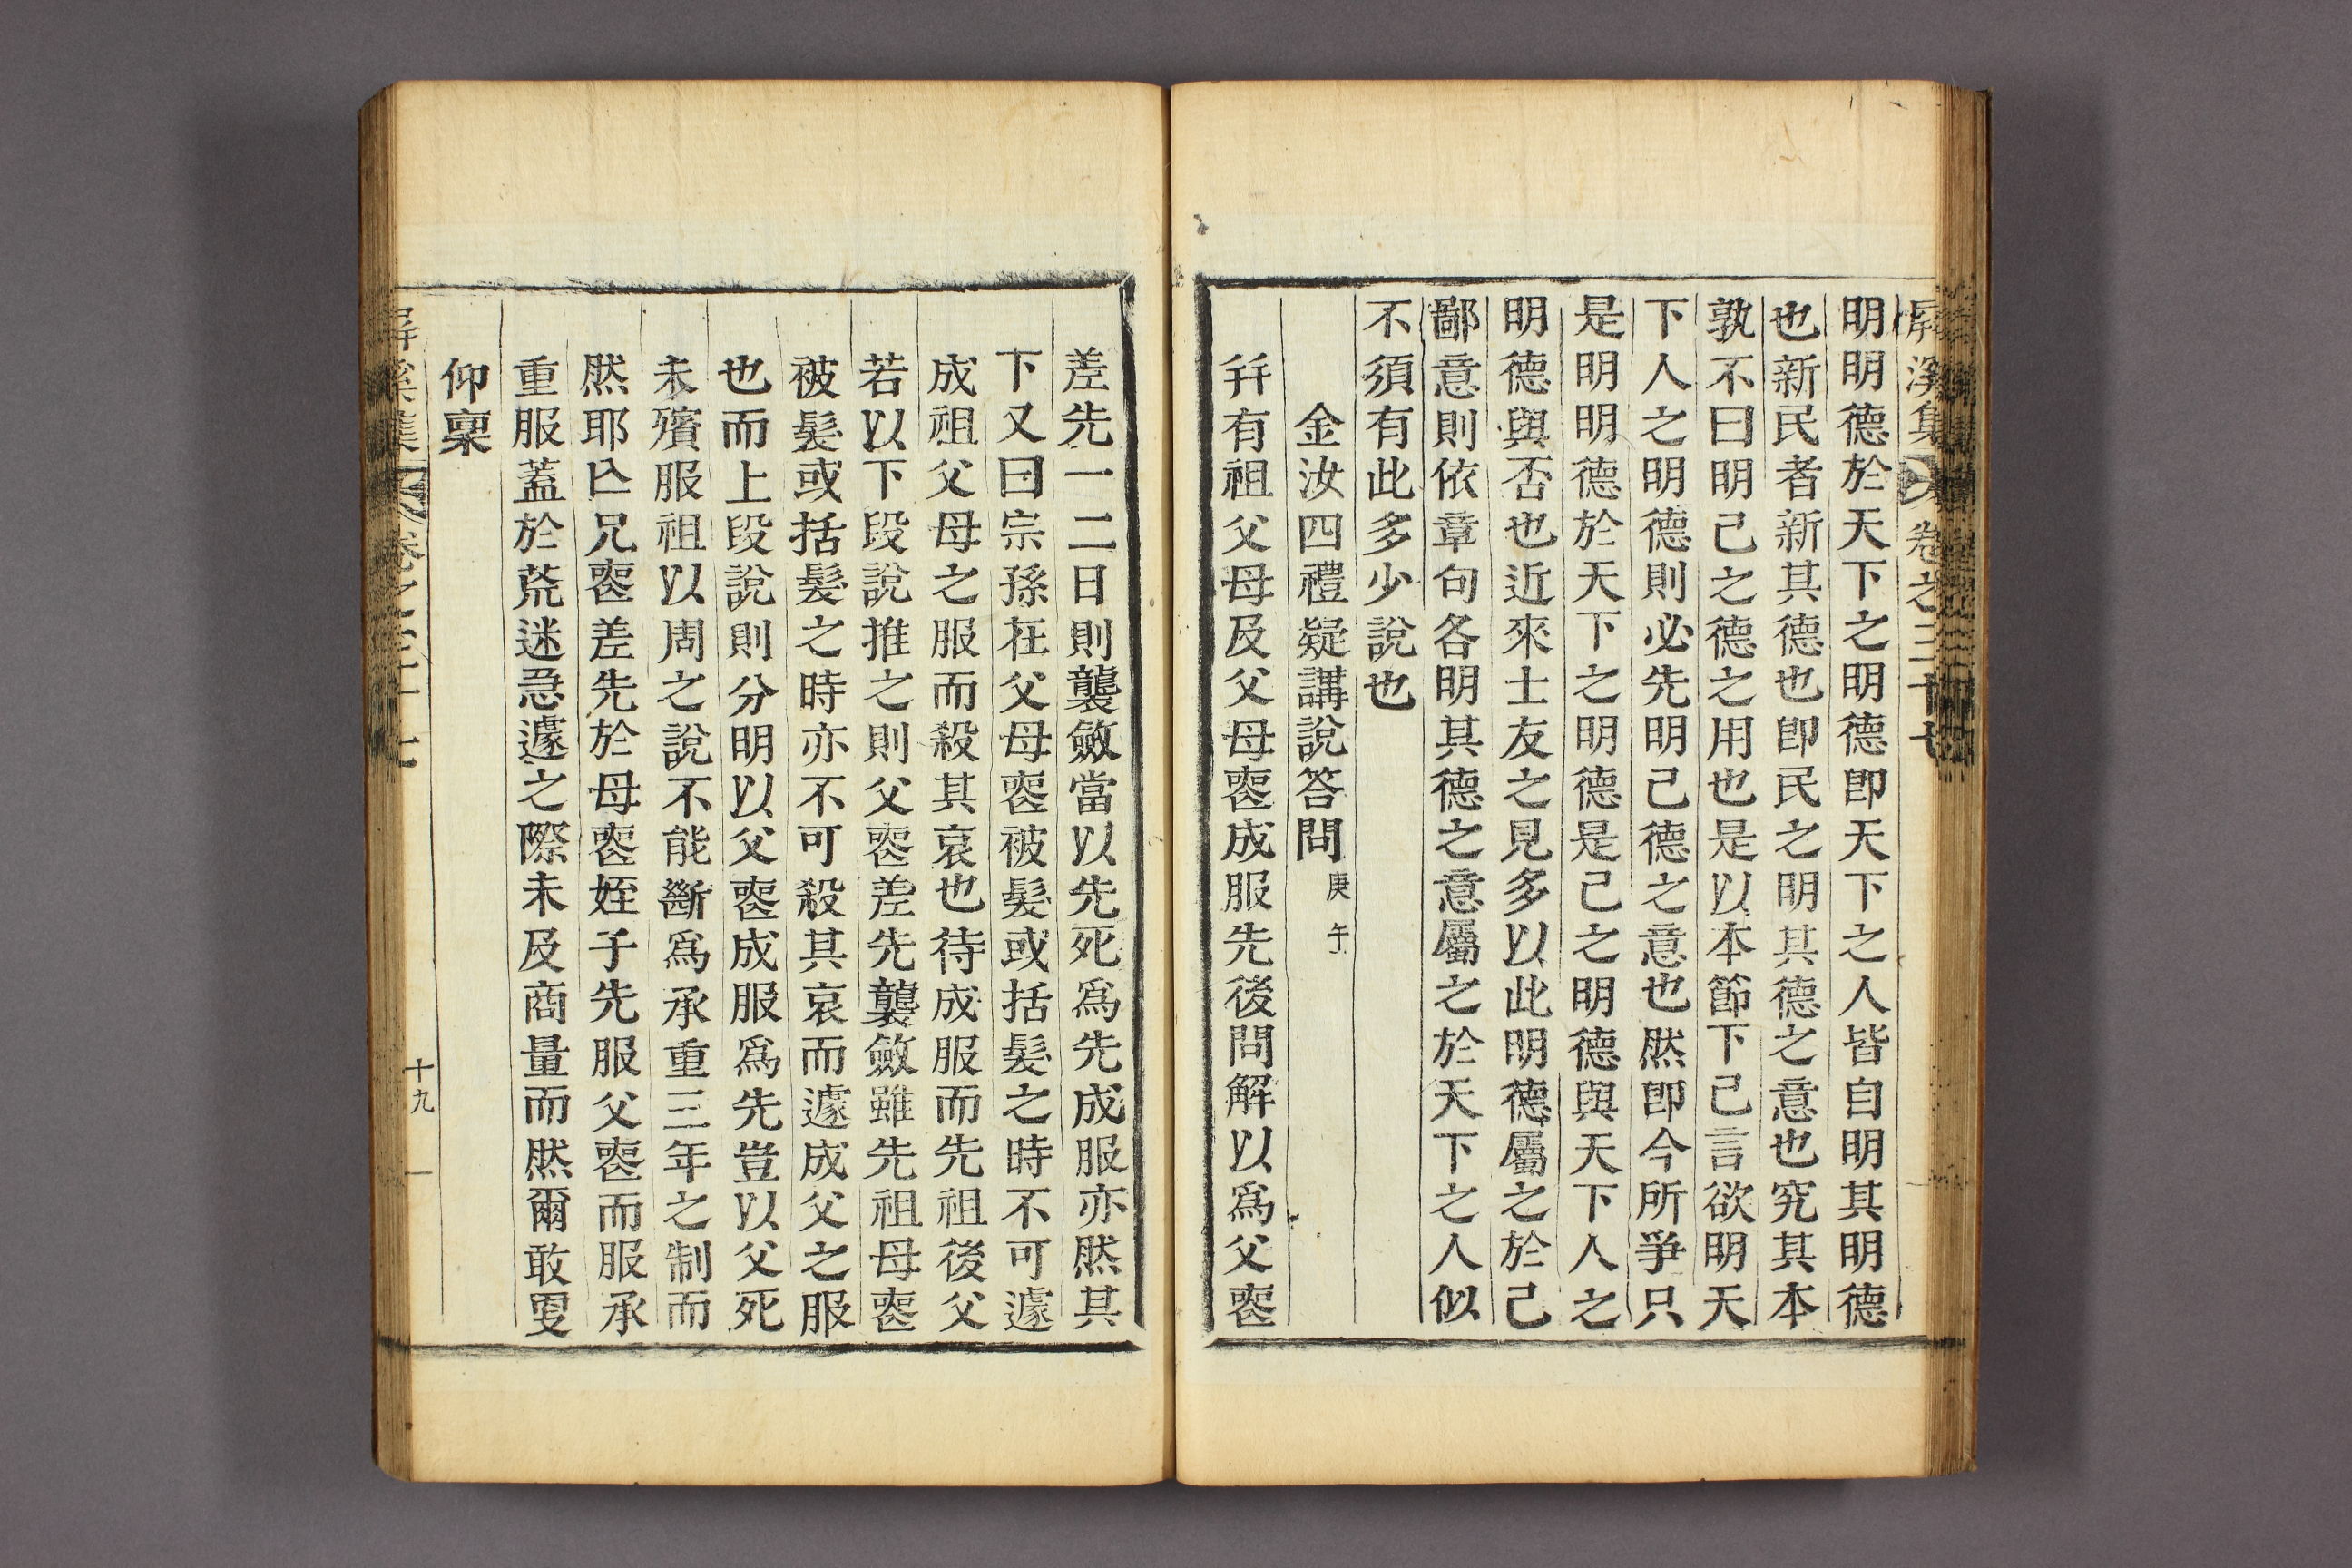 屛溪集 卷之三十七
明明德於天下之明德卽天下之人皆自明其明德
也新民者新其德也卽民之明其德之意也究其本
孰不曰明己之德之用也是以本節下己言欲明天
下人之明德則必先明己德之意也然卽今所爭只
是明明德於天下之明德是己之明德與天下人之
明德與否也近來士友之見多以此明德屬之於己
鄙意則依章句各明其德之意屬之於天下之人似
不須有此多少說也
金汝四禮疑講說答問庚午
幷有祖父母及父母喪成服先後問解以爲父喪
差先一二日則襲斂當以先死爲先成服亦然其
下又曰宗孫在父母喪被髮或括髮之時不可遽
成祖父母之服而殺其哀也待成服而先祖後父
若以下段說推之則父喪差先襲斂雖先祖母喪
被髮或括髮之時亦不可殺其哀而遽成父之服
也而上段說則分明以父喪成服爲先豈以父死
未殯服祖以周之說不能斷爲承重三年之制而
然耶亡兄喪差先於母喪姪子先服父喪而服承
重服蓋於荒迷急遽之際未及商量而然爾敢更
仰稟
屛溪集 卷之三十七
十九